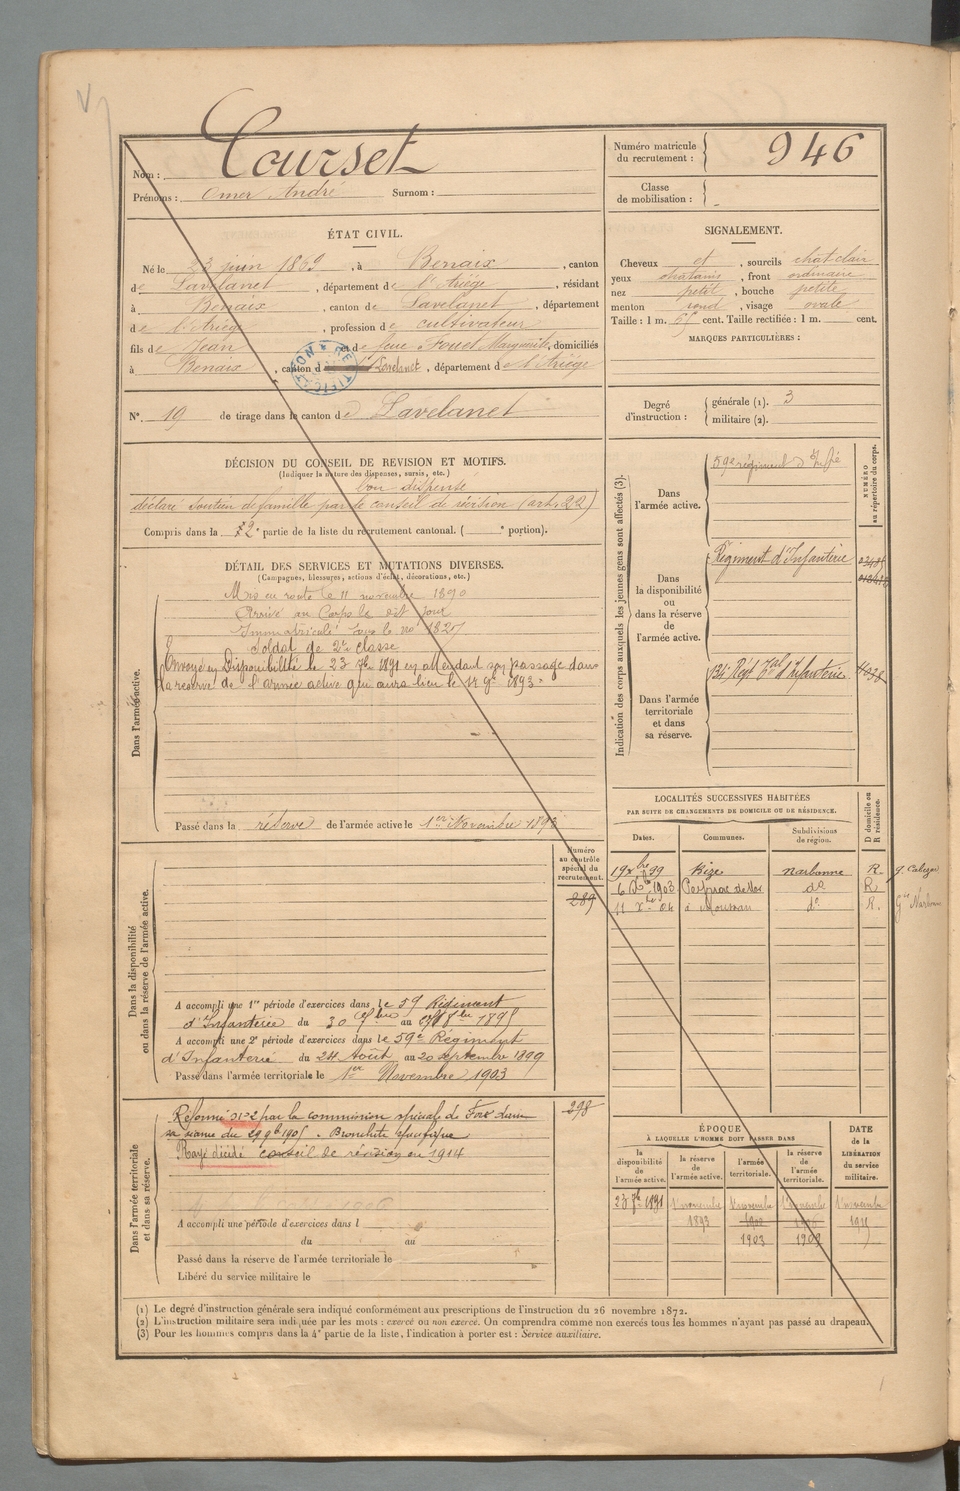 Nom : Courset
Prénoms : Omer André Surnom :
Numéro matricule du recrutement : 946
Classe de mobilisation :
ÉTAT CIVIL.
Né le 23 juin 1869, à Benaix, canton
de Lavelanet, département de l'Ariège, résidant
à Benaix, canton de Lavelanet, département
de l'Ariège, profession de cultivateur
fils de Jean et de feue Fouet Marguerite, domiciliés
à Benaix, canton d Lavelanet, département de l'Ariège
RECTIFICATION
N° 19 de tirage dans le canton de Lavelanet
SIGNALEMENT.
Cheveux et, sourcils chat clair
yeux chatains, front ordinaire
nez petit, bouche petite
menton rond, visage ovale
Taille : 1 m. 65 cent. Taille rectifiée : 1 m. cent.
MARQUES PARTICULIÈRES :
Degré d'instruction : générale (1). 3
militaire (2).
DÉCISION DU CONSEIL DE REVISION ET MOTIFS.
(Indiquer la nature des dispenses, sursis, etc.)
bon dispensé
déclaré soutien de famille par le conseil de révision (art. 22)
Compris dans la 2e partie de la liste du recrutement cantonal. ( e portion).
DÉTAIL DES SERVICES ET MUTATIONS DIVERSES.
(Campagnes, blessures, actions d'éclat, décorations, etc.)
Dans l'armée active.
Mis en route le 11 novembre 1890
Arrivé au Corps le dit jour
Immatriculé sous le no
Soldat de 2e classe
Envoyé en Disponibilité le 23 7bre 1891 en attendant son passage dans
la réserve de l'armée active qui aura lieu le 1er 9bre 1893.
Passé dans la réserve de l'armée active le 1er Novembre 1893
Indication des corps auxquels les jeunes gens sont affectés (3).
NUMÉRO au répertoire du corps.
Dans l'armée active. 59e régiment d'Infie
Dans la disponibilité ou dans la réserve de l'armée active. Régiment d'Infanterie
Dans l'armée territoriale et dans sa réserve. 134e Régt Tal d'Infanterie
LOCALITÉS SUCCESSIVES HABITÉES
PAR SUITE DE CHANGEMENTS DE DOMICILE OU DE RÉSIDENCE.
D domicile ou R résidence.
Dates. Communes. Subdivisions de région.
19 xbre 99 Bize Narbonne R.
6 1903 do R
11 Xbre 04 à Moussan do R.
Dans la disponibilité ou dans la réserve de l'armée active.
Numéro au contrôle spécial du recrutement.
289
A accompli une 1re période d'exercices dans le 59 Régiment
d'Infanterie du 30 7bre au 8bre 1895
A accompli une 2e période d'exercices dans le 59e Régiment
d'Infanterie du 24 Août au 20 septembre 1899
Passé dans l'armée territoriale le 1er Novembre 1903
Dans l'armée territoriale et dans sa réserve.
298
Réformé no 2 par la commission spéciale de Foix dans
sa séance du 29 9b 1905. Bronchite
Rayé décidé conseil de révision en 1914
A accompli une période d'exercices dans l
du au
Passé dans la réserve de l'armée territoriale le
Libéré du service militaire le
ÉPOQUE
À LAQUELLE L'HOMME DOIT PASSER DANS
DATE de la LIBÉRATION du service militaire.
la disponibilité de l'armée active. la réserve de l'armée active. l'armée territoriale. la réserve de l'armée territoriale.
23 7bre 1891 1er novembre 1er novembre 1er novembre 1er novembre
1893 1915
1903 1909
(1) Le degré d'instruction générale sera indiqué conformément aux prescriptions de l'instruction du 26 novembre 1872.
(2) L'instruction militaire sera indiquée par les mots : exercé ou non exercé. On comprendra comme non exercés tous les hommes n'ayant pas passé au drapeau.
(3) Pour les hommes compris dans la 4e partie de la liste, l'indication à porter est : Service auxiliaire.